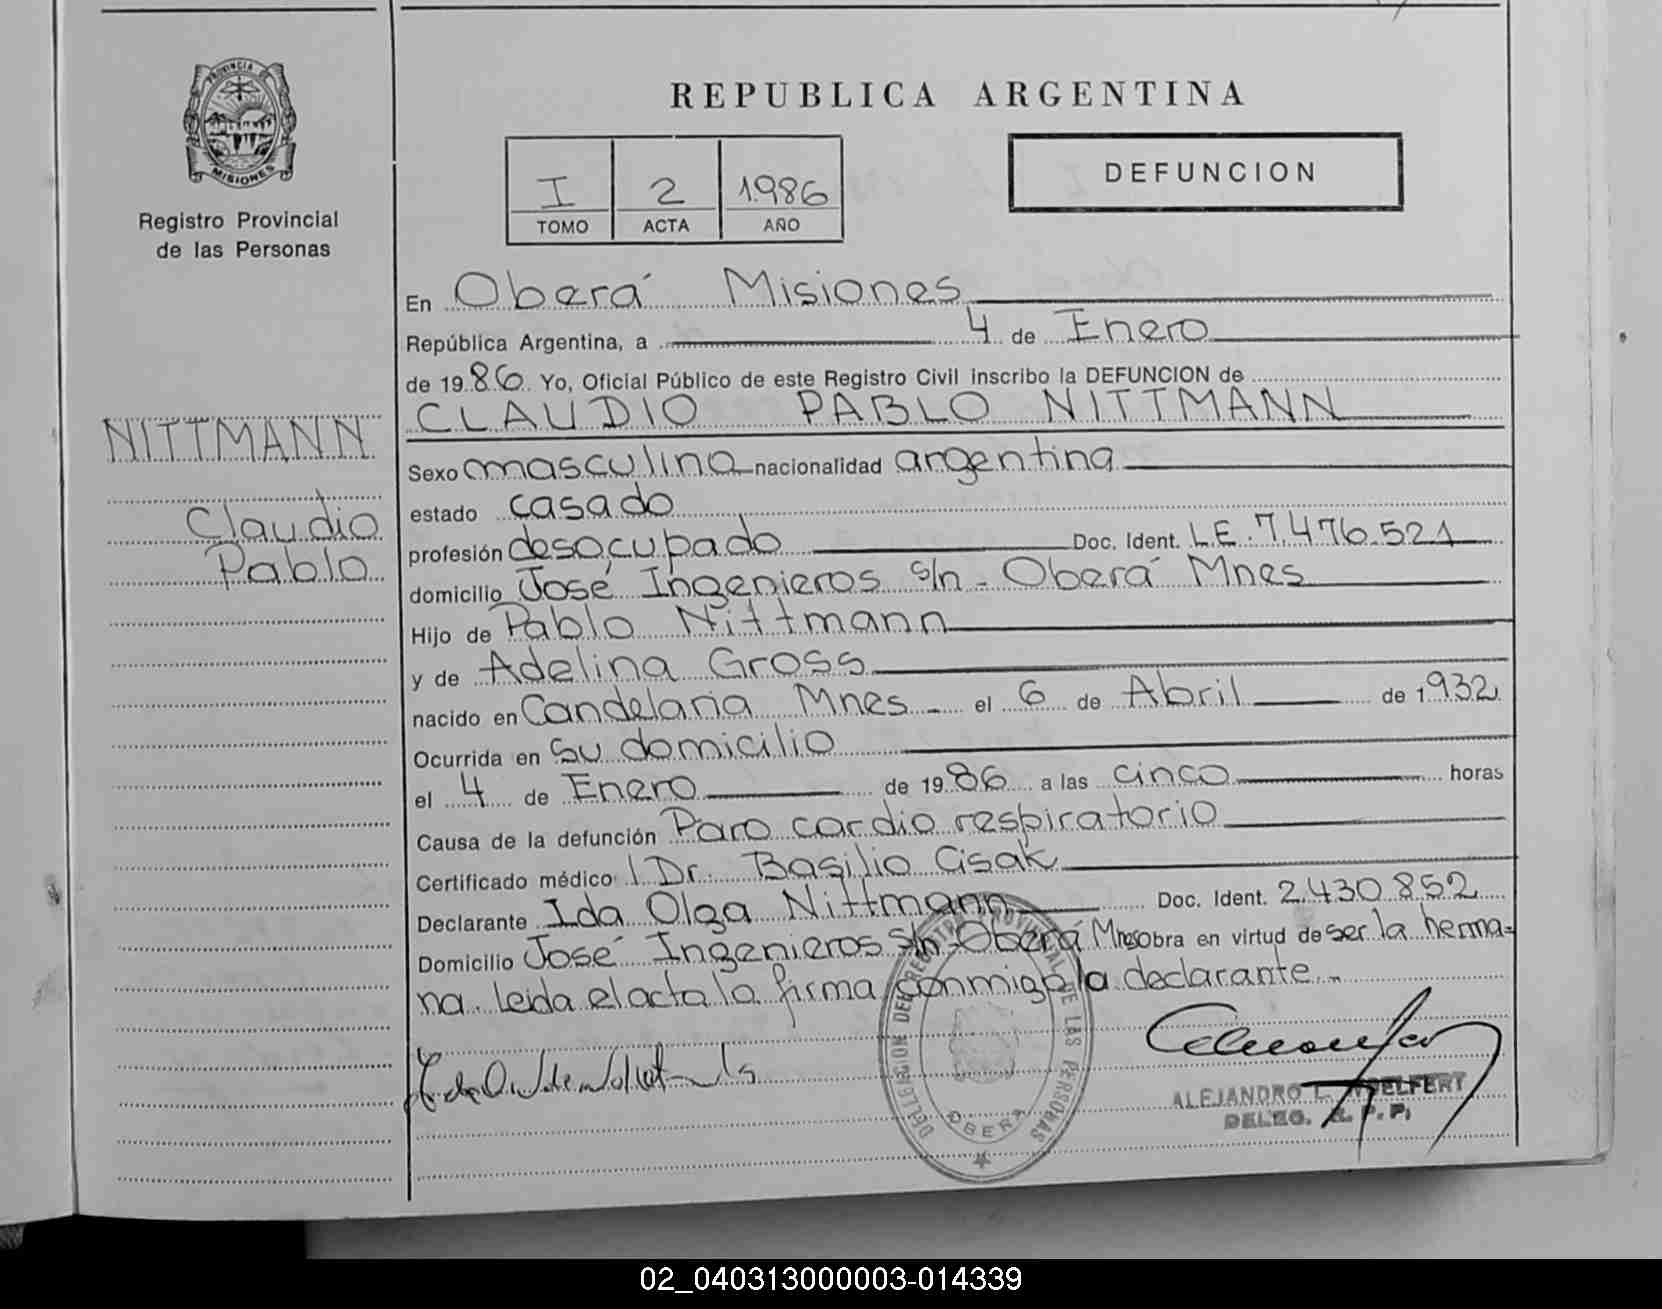 REPUBLICA ARGENTINA
PROVINCIA DE
MISIONES
Registro Provincial
de las Personas
I 2 1.986
TOMO ACTA AÑO
DEFUNCION
En Oberá Misiones
República Argentina, a 4 de Enero
de 1986. Yo, Oficial Público de este Registro Civil inscribo la DEFUNCION de
CLAUDIO PABLO NITTMANN
NITTMANN
Claudio
Pablo
Sexo masculino nacionalidad argentina
estado casado
profesión desocupado Doc. Ident. L.E. 7.476.521
domicilio José Ingenieros s/n - Oberá Mnes
Hijo de Pablo Nittmann
y de Adelina Gross
nacido en Candelaria Mnes - el 6 de Abril de 1932
Ocurrida en su domicilio
el 4 de Enero de 1986 a las cinco horas
Causa de la defunción Paro cardio respiratorio
Certificado médico Dr. Basilio Cisak
Declarante Ida Olga Nittmann Doc. Ident. 2.430.852
Domicilio José Ingenieros s/n - Oberá Mnes obra en virtud de ser la herma=
na. Leida el acta la firma conmigo la declarante.-
DELEGACION DEL REGISTRO PROVINCIAL DE LAS PERSONAS
OBERA
ALEJANDRO L.
DELEG. R. P. P.
02_040313000003-014339